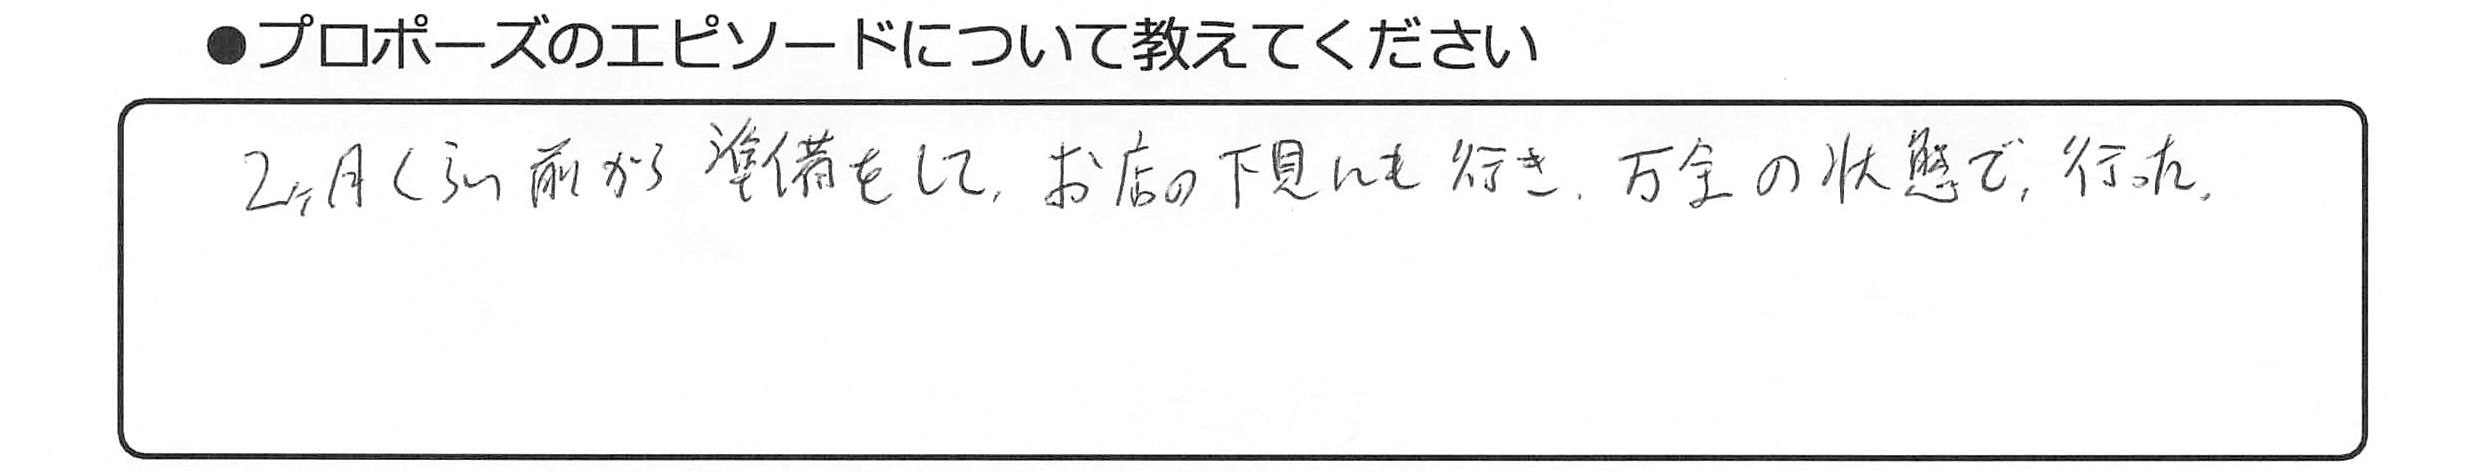 ●プロポーズのエピソードについて教えてください
2ヶ月くらい前から準備をして、お店の下見にも行き、万全の状態で、行った。